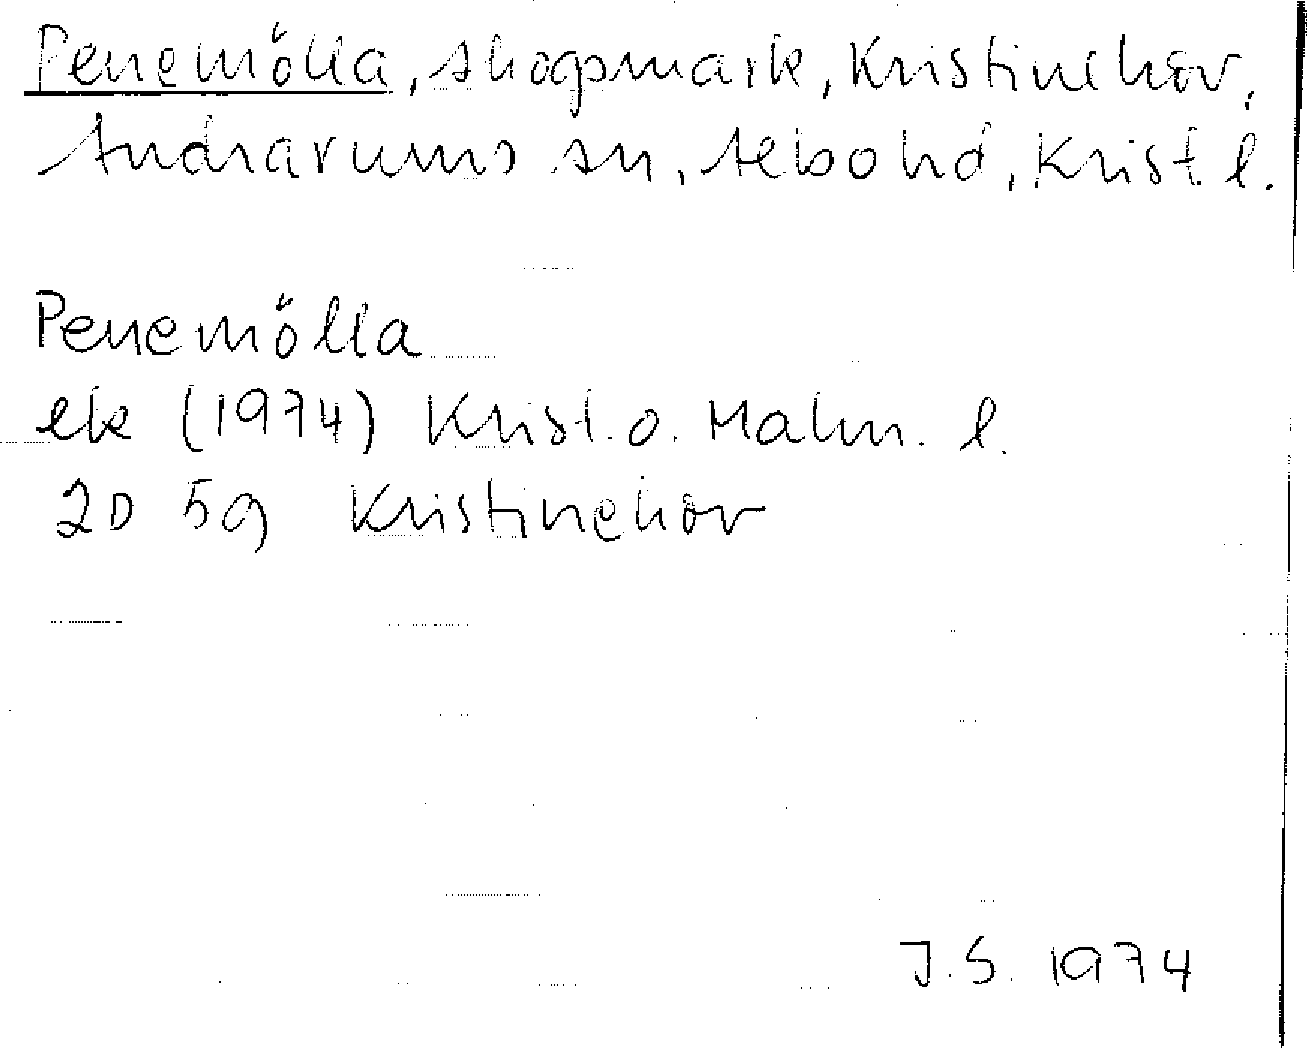 Penemölla, skogsmark, Kristinehov,
Andrarums sn, Albo hd, Krist l.
Penemölla
ek (1974) Krist. o. Malm. l.
2D 5g Kristinehov
J.S. 1974